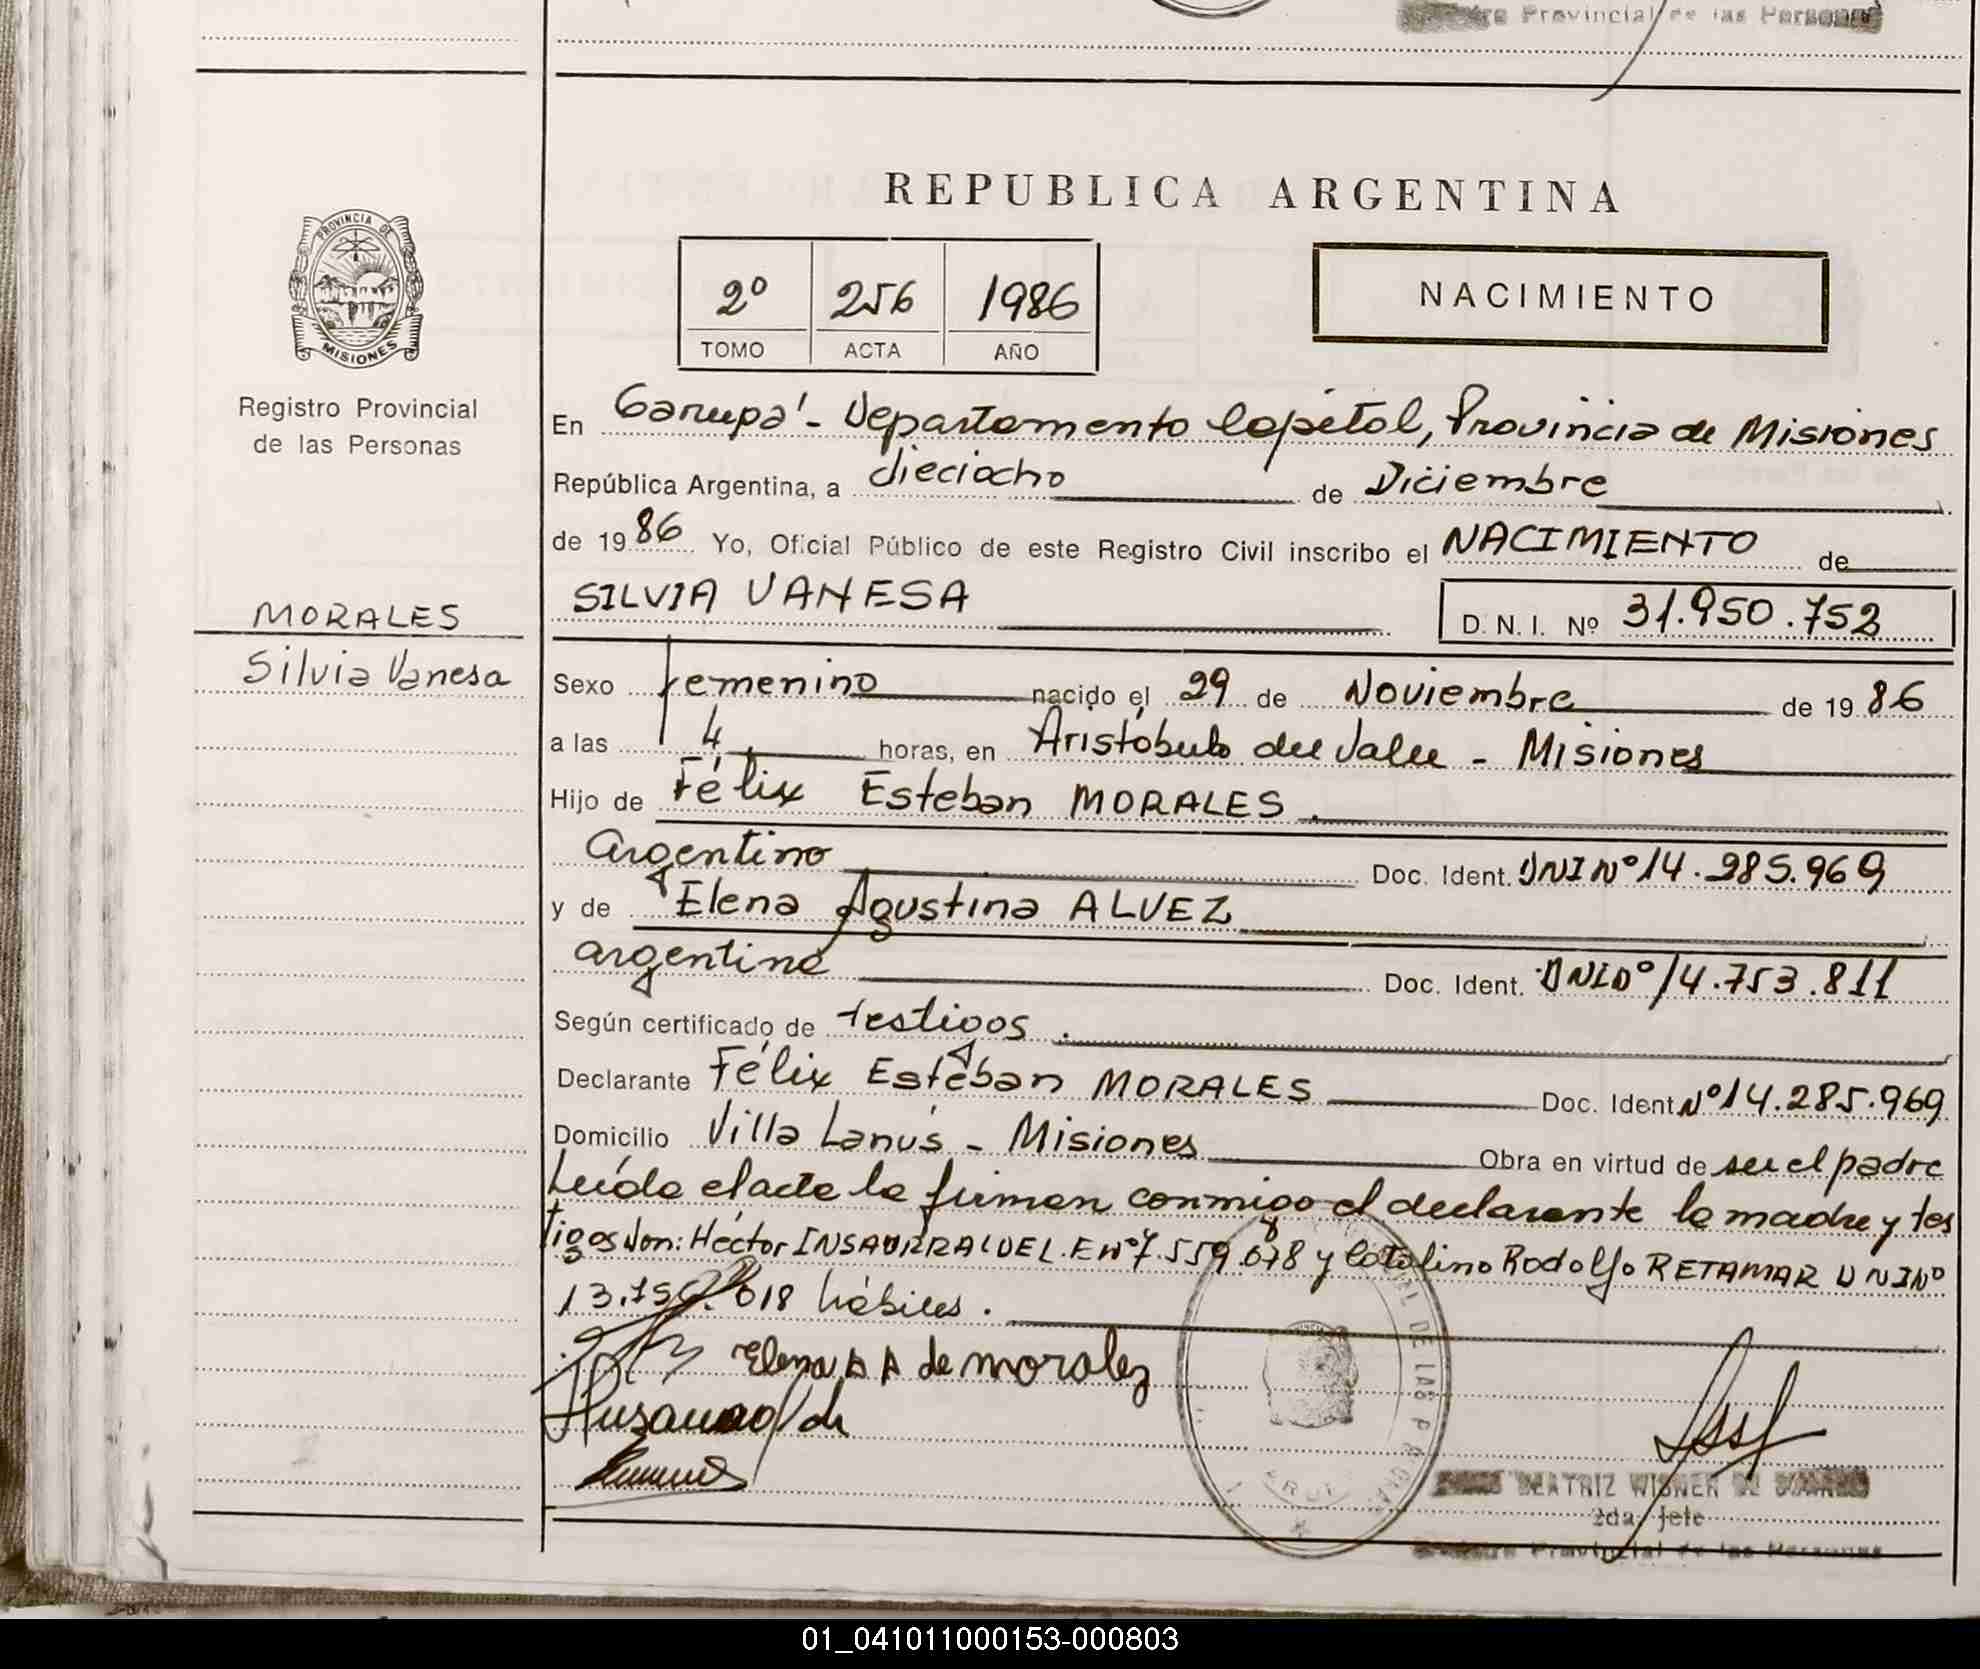 Provincial de las Personas
REPUBLICA ARGENTINA
PROVINCIA DE
MISIONES
Registro Provincial
de las Personas
2º 256 1986
TOMO ACTA AÑO
NACIMIENTO
En Garupá - Departamento Capital, Provincia de Misiones
República Argentina, a dieciocho de Diciembre
de 1986 Yo, Oficial Público de este Registro Civil inscribo el NACIMIENTO de
SILVIA VANESA D. N. I. Nº 31.950.752
MORALES
Silvia Vanesa
Sexo femenino nacido el 29 de Noviembre de 1986
a las 4 horas, en Aristóbulo del Valle - Misiones
Hijo de Félix Esteban MORALES.
argentino Doc. Ident. DNI Nº 14.285.969
y de Elena Agustina ALVEZ
argentina Doc. Ident. DNI Nº 14.753.811
Según certificado de testigos.
Declarante Félix Esteban MORALES Doc. Ident. Nº 14.285.969
Domicilio Villa Lanús - Misiones Obra en virtud de ser el padre
Leída el acta la firman conmigo el declarante la madre y tes
tigos don: Héctor INSAURRALDE L.E Nº 7.559.078 y Catalino Rodolfo RETAMAR DNI Nº
13. 018 hábiles.
Elena A A de morales
BEATRIZ WISNER DE
2da. Jefe
Provincial de las Personas
01_041011000153-000803